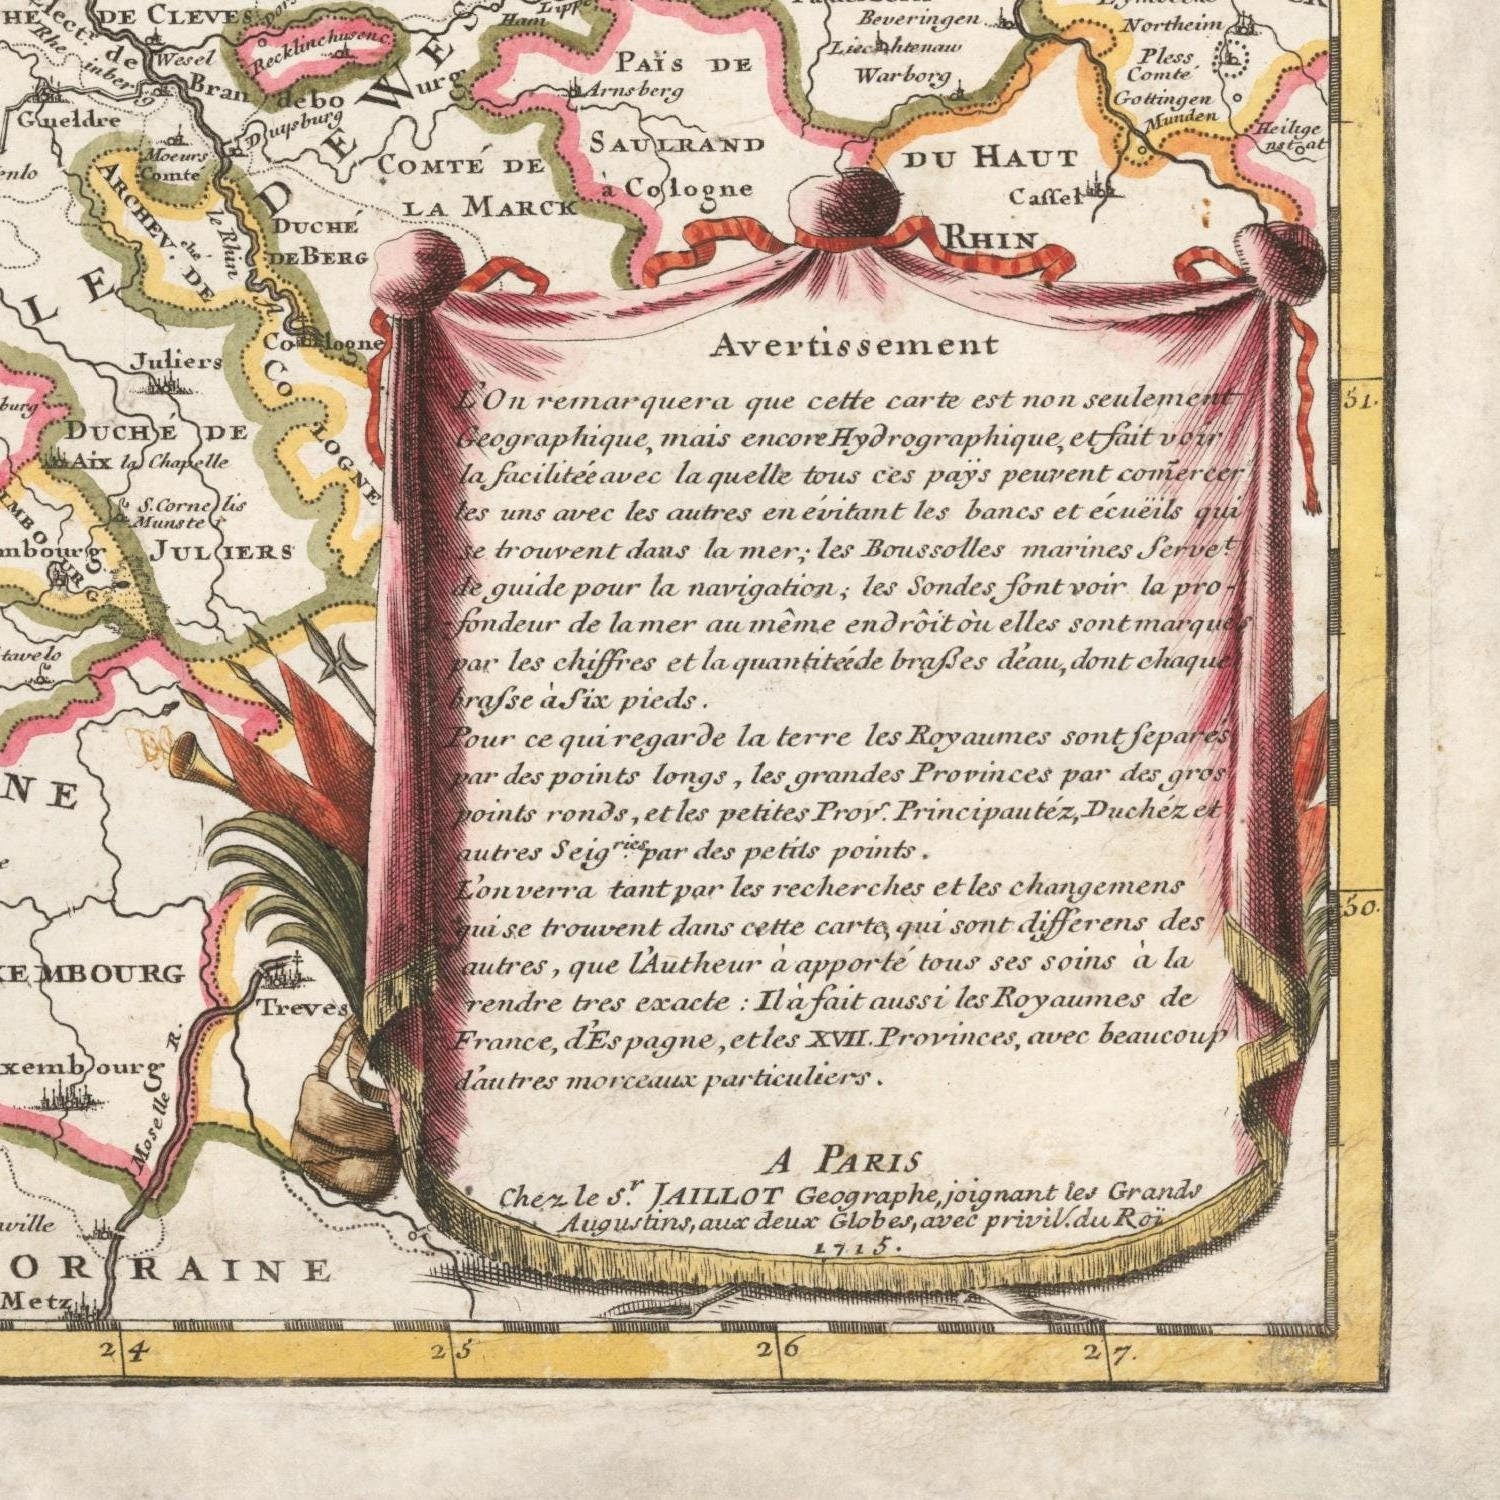 DE CLEVES
Wesel
Recklinchusenc.
Ham
Lippe
Beveringen
Northeim
Liechtenaw
Pless
Comté
PAÏS DE
Arnsberg
Warborg
Gueldre
Duysburg
Gottingen
Munden
Moeurs
Comte
COMTÉ DE
LA MARCK
SAURLAND
à Cologne
DU HAUT
Cassel
RHIN
ARCHEV.ché DE
COLOGNE
le Rhin
DUCHÉ
DE BERG
Cologne
Juliers
DUCHÉ DE
Aix la Chapelle
S. Cornelis
Munster
JULIERS
Treves
Moselle R.
Metz
Avertissement
L'On remarquera que cette carte est non seulement
Geographique, mais encore Hydrographique, et fait voir
la facilitée avec la quelle tous ces paÿs peuvent com̃ercer
les uns avec les autres en évitant les bancs et écuëils qui
se trouvent dans la mer; les Boussolles marines serve.t
de guide pour la navigation; les Sondes font voir la pro-
fondeur de la mer au même endrôit òu elles sont marquées
par les chiffres et la quantitéé de brasses d'eau, dont chaque
brasse à six pieds.
Pour ce qui regarde la terre les Royaumes sont separés
par des points longs, les grandes Provinces par des gros
points ronds, et les petites Prov.s Principautéz, Duchéz et
autres Seig.ries par des petits points.
L'on verra tant par les recherches et les changemens
qui se trouvent dans cette carte, qui sont differens des
autres, que l'Autheur à apporté tous ses soins à la
rendre tres exacte: Il à fait aussi les Royaumes de
France, d'Espagne, et les XVII. Provinces, avec beaucoup
d'autres morceaux particuliers.
A PARIS
Chez le S.r JAILLOT Geographe, joignant les Grands
Augustins, aux deux Globes, avec privil. du Roï
1715.
51.
50.
24
25
26
27.